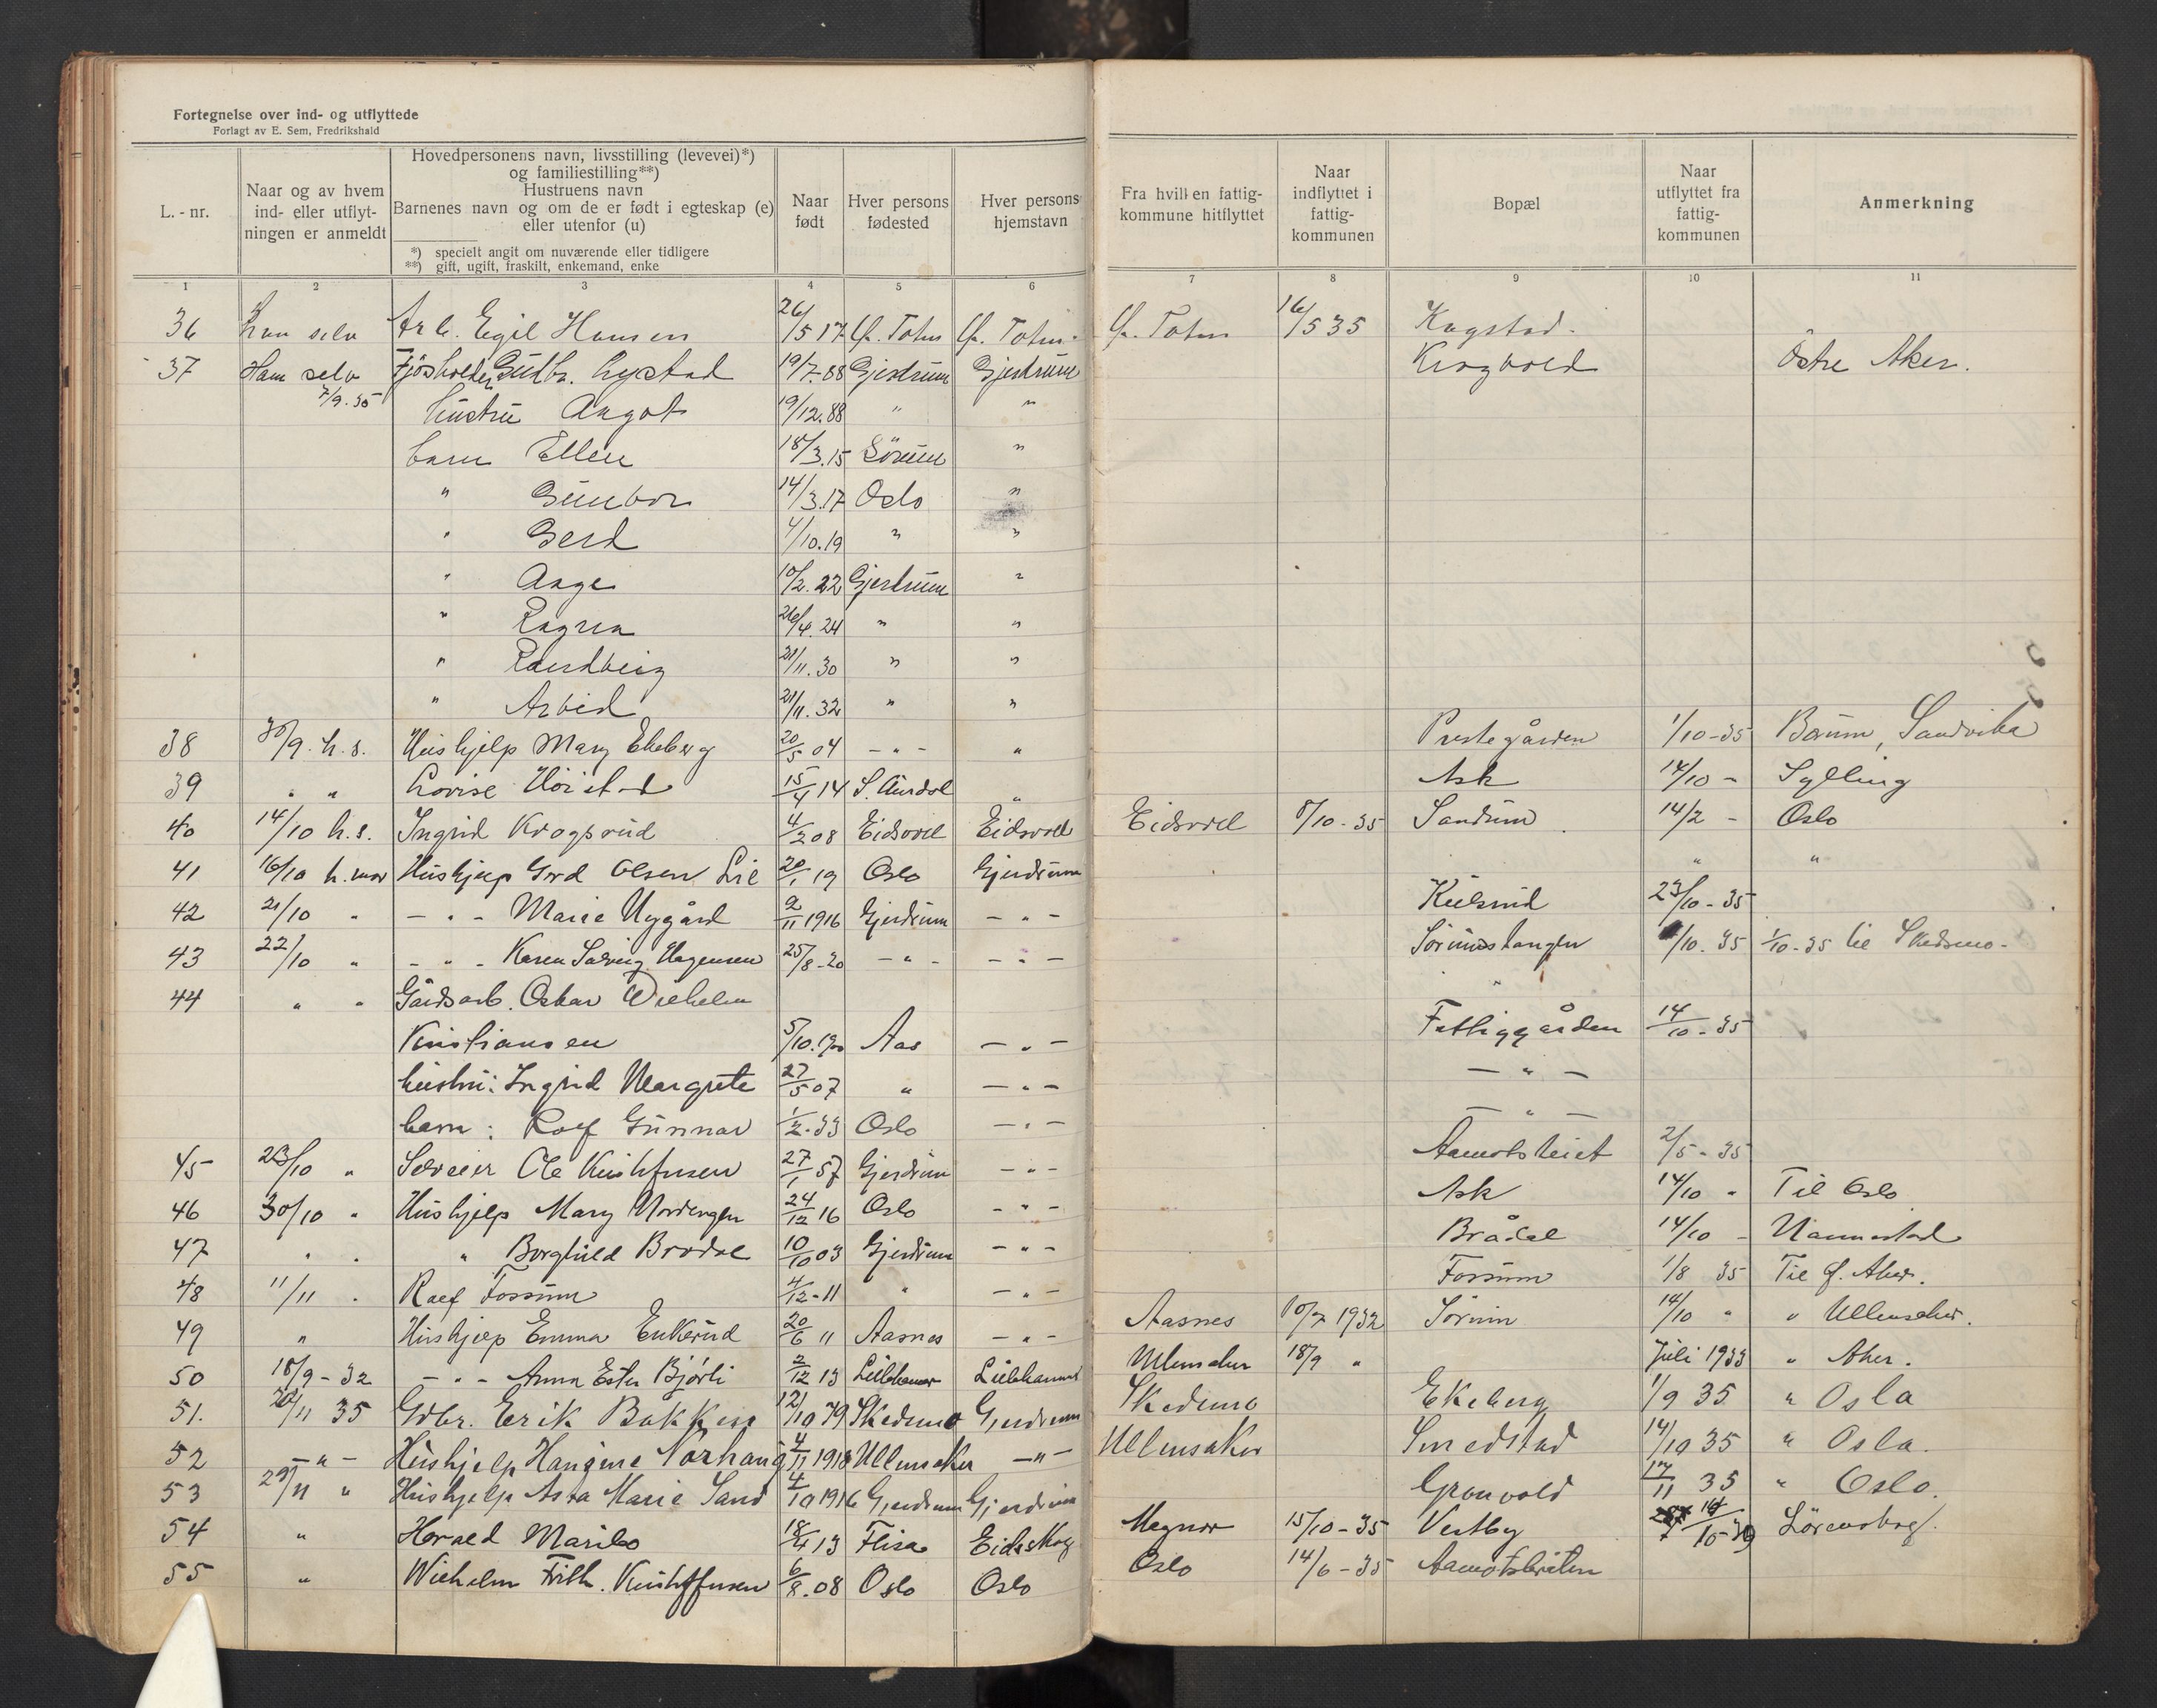 Fortegnelse over ind- og utflyttede
Forlagt av E. Sem, Fredrikshald
L.-nr.
Naar og av hvem ind- eller utflytningen er anmeldt
Hovedpersonens navn, livsstilling (levevei)*)
og familiestilling**)
Hustruens navn
Barnenes navn og om de er født i egteskap (e)
eller utenfor (u)
*) specielt angit om nuværende eller tidligere
**) gift, ugift, fraskilt, enkemand, enke
Naar født
Hver persons fødested
Hver persons hjemstavn
Fra hvilken fattigkommune hitflyttet
Naar indflyttet i fattigkommunen
Bopæl
Naar utflyttet fra fattigkommunen
Anmerkning
1 2 3 4 5 6 7 8 9 10 11
36 han selv Arb. Egil Hansen 26/5 17 Ø. Toten Ø. Toten Ø. Toten 16/5 35 Kogstad
37 Ham selv Gudbr. Lystad 19/7.88 Gjerdrum Gjerdrum Krogvold Östre Aker.
7/9.35 hustru Aagot 19/12.88 " "
barn Ellen 18/3.15 Sörum "
" Gunbor 14/3.17 Oslo "
" Gerd /10.19 " "
" Aage 10/2.22 Gjerdrum "
" Ragna 26/4.24 " "
" Randveig 21/11.30 " "
" Arvid 21/11.32 " "
38 30/9. h.s. Hushjelp Mary Ekeberg 20/5 04 - " - " Prestegården 1/10-35 Bærum, Sandvika
39 " " Lovise Höistad 15/4 14 S. Aurdal " Ask 14/10 - Sylling
40 14/10 h.s. Ingrid Krogsrud 4/2 08 Eidsvoll Eidsvoll Eidsvoll 8/10-35 Sandum 14/2 - Oslo
41 16/10 h. mor Hushjelp Gerd Olsen Lie 20/1 19 Oslo Gjerdrum " "
42 21/10 " - " - Marie Nygård 2/11 1916 Gjerdrum - " - Kulsrud 23/10-35
43 22/10 " - " - Karen Solveig Hagensen 25/8-20 - " - - " - Sörumstangen /10.35 1/10-35 til Skedsmo-
44 " " Gårdsarb. Oskar Wilhelm "
Kristiansen 5/10.190 Aas - " - Fattiggården 14/10-35
hustru: Ingrid Margrete 27/5 07 " - " - - " -
barn: Rolf Gunnar 1/2-33 Oslo - " - - " -
45 23/10 " Ole Kristofersen 27/1 57 Gjerdrum - " - 2/5-35
46 30/10 " Hushjelp Mary Nordengen 24/12 16 Oslo - " - Ask 14/10 " Til Oslo
47 " " " Borghild Brodal 10/10 03 Gjerdrum - " - Brådal 14/10 - Nannestad
48 11/11 " Rolf Fossum 4/12-11 " - " - Fossum 1/8 35 Til Ø. Aker.
49 " Hushjelp Emma Enkerud 20/6 11 Aasnes - " - Aasnes 10/7 1932 Sörum 14/10 " " Ullensaker.
50 18/9-32 - " - Anna Ester Bjórli 2/12 13 Lillehamer Lillehammer Ullensaker 18/9 " Juli 1933 " Aker.
51. /11 35 Gbr. Erik Bakken 12/10 79 Skedsmo Gjerdrum Skedsmo Ekeberg 1/9 35 " Oslo
52 - " - Hushjelp Hangine Norhaug 4/11 1918 Ullensaker - " - Ullensaker Smedstad 14/10 35 " Oslo.
53 29/11 " Hushjelp Asta Marie Sand 4/10 1916 Gjerdrum Gjerdrum Gronvold 17/11 35 " Oslo.
54 " Harald Maribo 18/4 13 Flisa Eidskog Magnor 15/10-35 Vestby Lörenskog.
55 " Wilhelm Frith. Kristoffersen 6/8.08 Oslo Oslo Oslo 14/6-35 Aamotsbråten